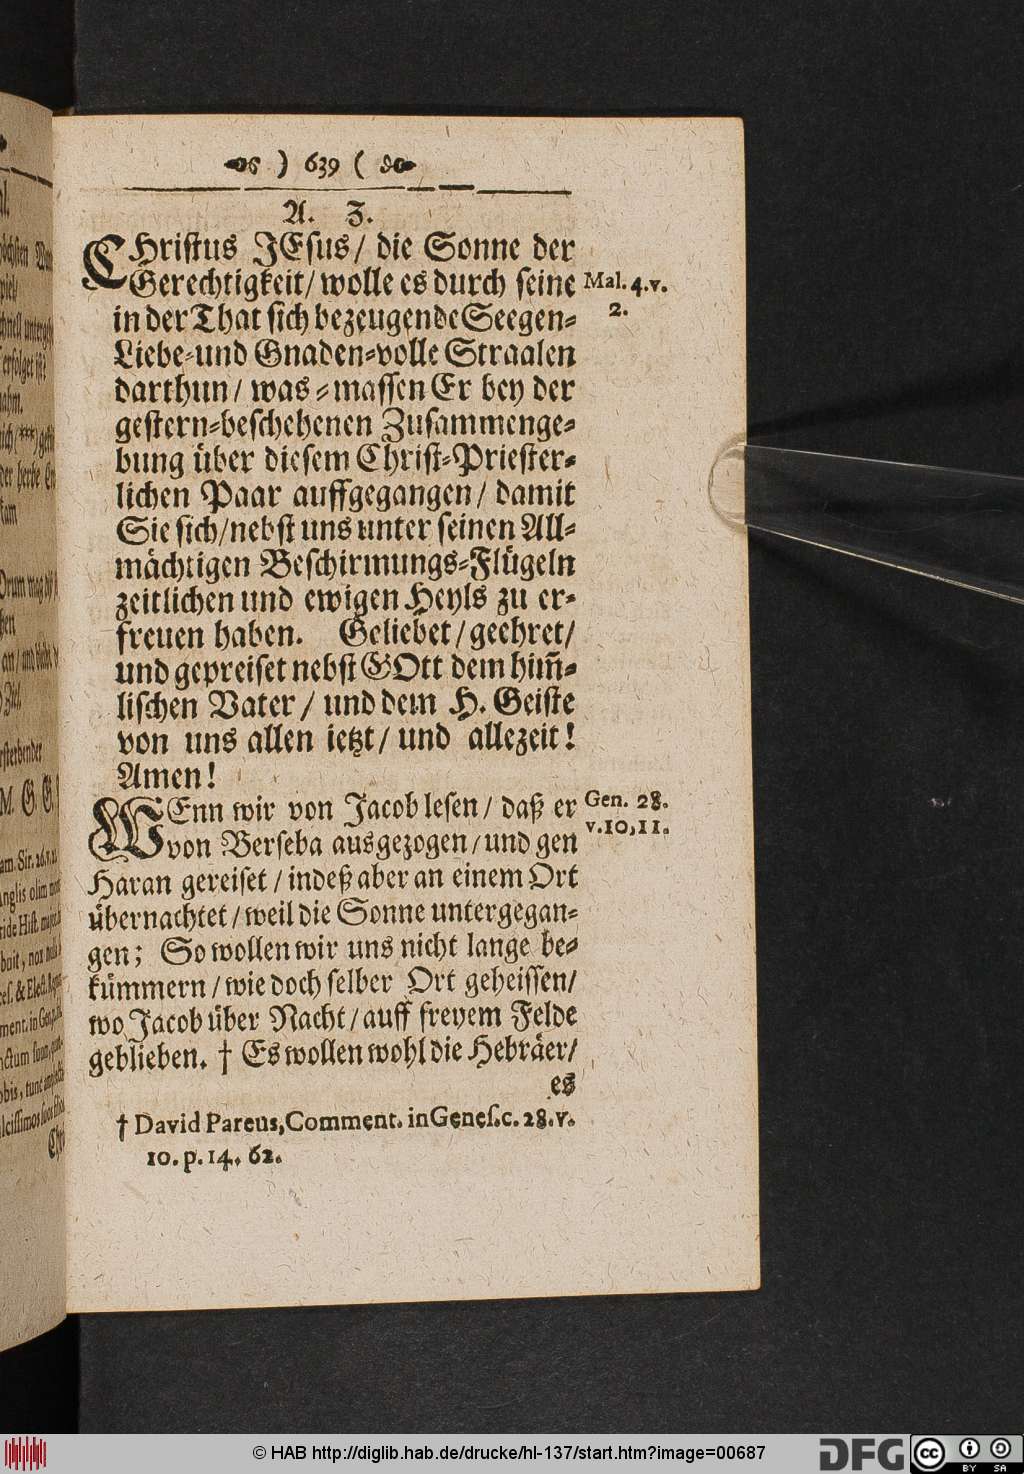 ) 639 (
A. Z.
CHristus JEsus/ die Sonne der
Gerechtigkeit/ wolle es durch seine
Mal. 4. v.
2.
in der That sich bezeugende Seegen-
Liebe-und Gnaden-volle Straalen
darthun/ was-massen Er bey der
gestern-beschehenen Zusammenge-
bung über diesem Christ-Priester-
lichen Paar auffgegangen/ damit
Sie sich/ nebst uns unter seinen All-
mächtigen Beschirmungs-Flügeln
zeitlichen und ewigen Heyls zu er-
freuen haben. Geliebet/ geehret/
und gepreiset nebst GOtt dem him̅-
lischen Vater/ und dem H. Geiste
von uns allen ietzt/ und allezeit!
Amen!
WEnn wir von Jacob lesen/ daß er
Gen. 28.
von Berseba ausgezogen/ und gen
v. 10, 11.
Haran gereiset/ indeß aber an einem Ort
übernachtet/ weil die Sonne untergegan-
gen; So wollen wir uns nicht lange be-
kümmern/ wie doch selber Ort geheissen/
wo Jacob über Nacht/ auff freyem Felde
geblieben. † Es wollen wohl die Hebräer/
es
† David Pareus, Comment. in Genes. c. 28. v.
10. p. 14. 62.
© HAB http://diglib.hab.de/drucke/hl-137/start.htm?image=00687
DFG
cc
BY SA